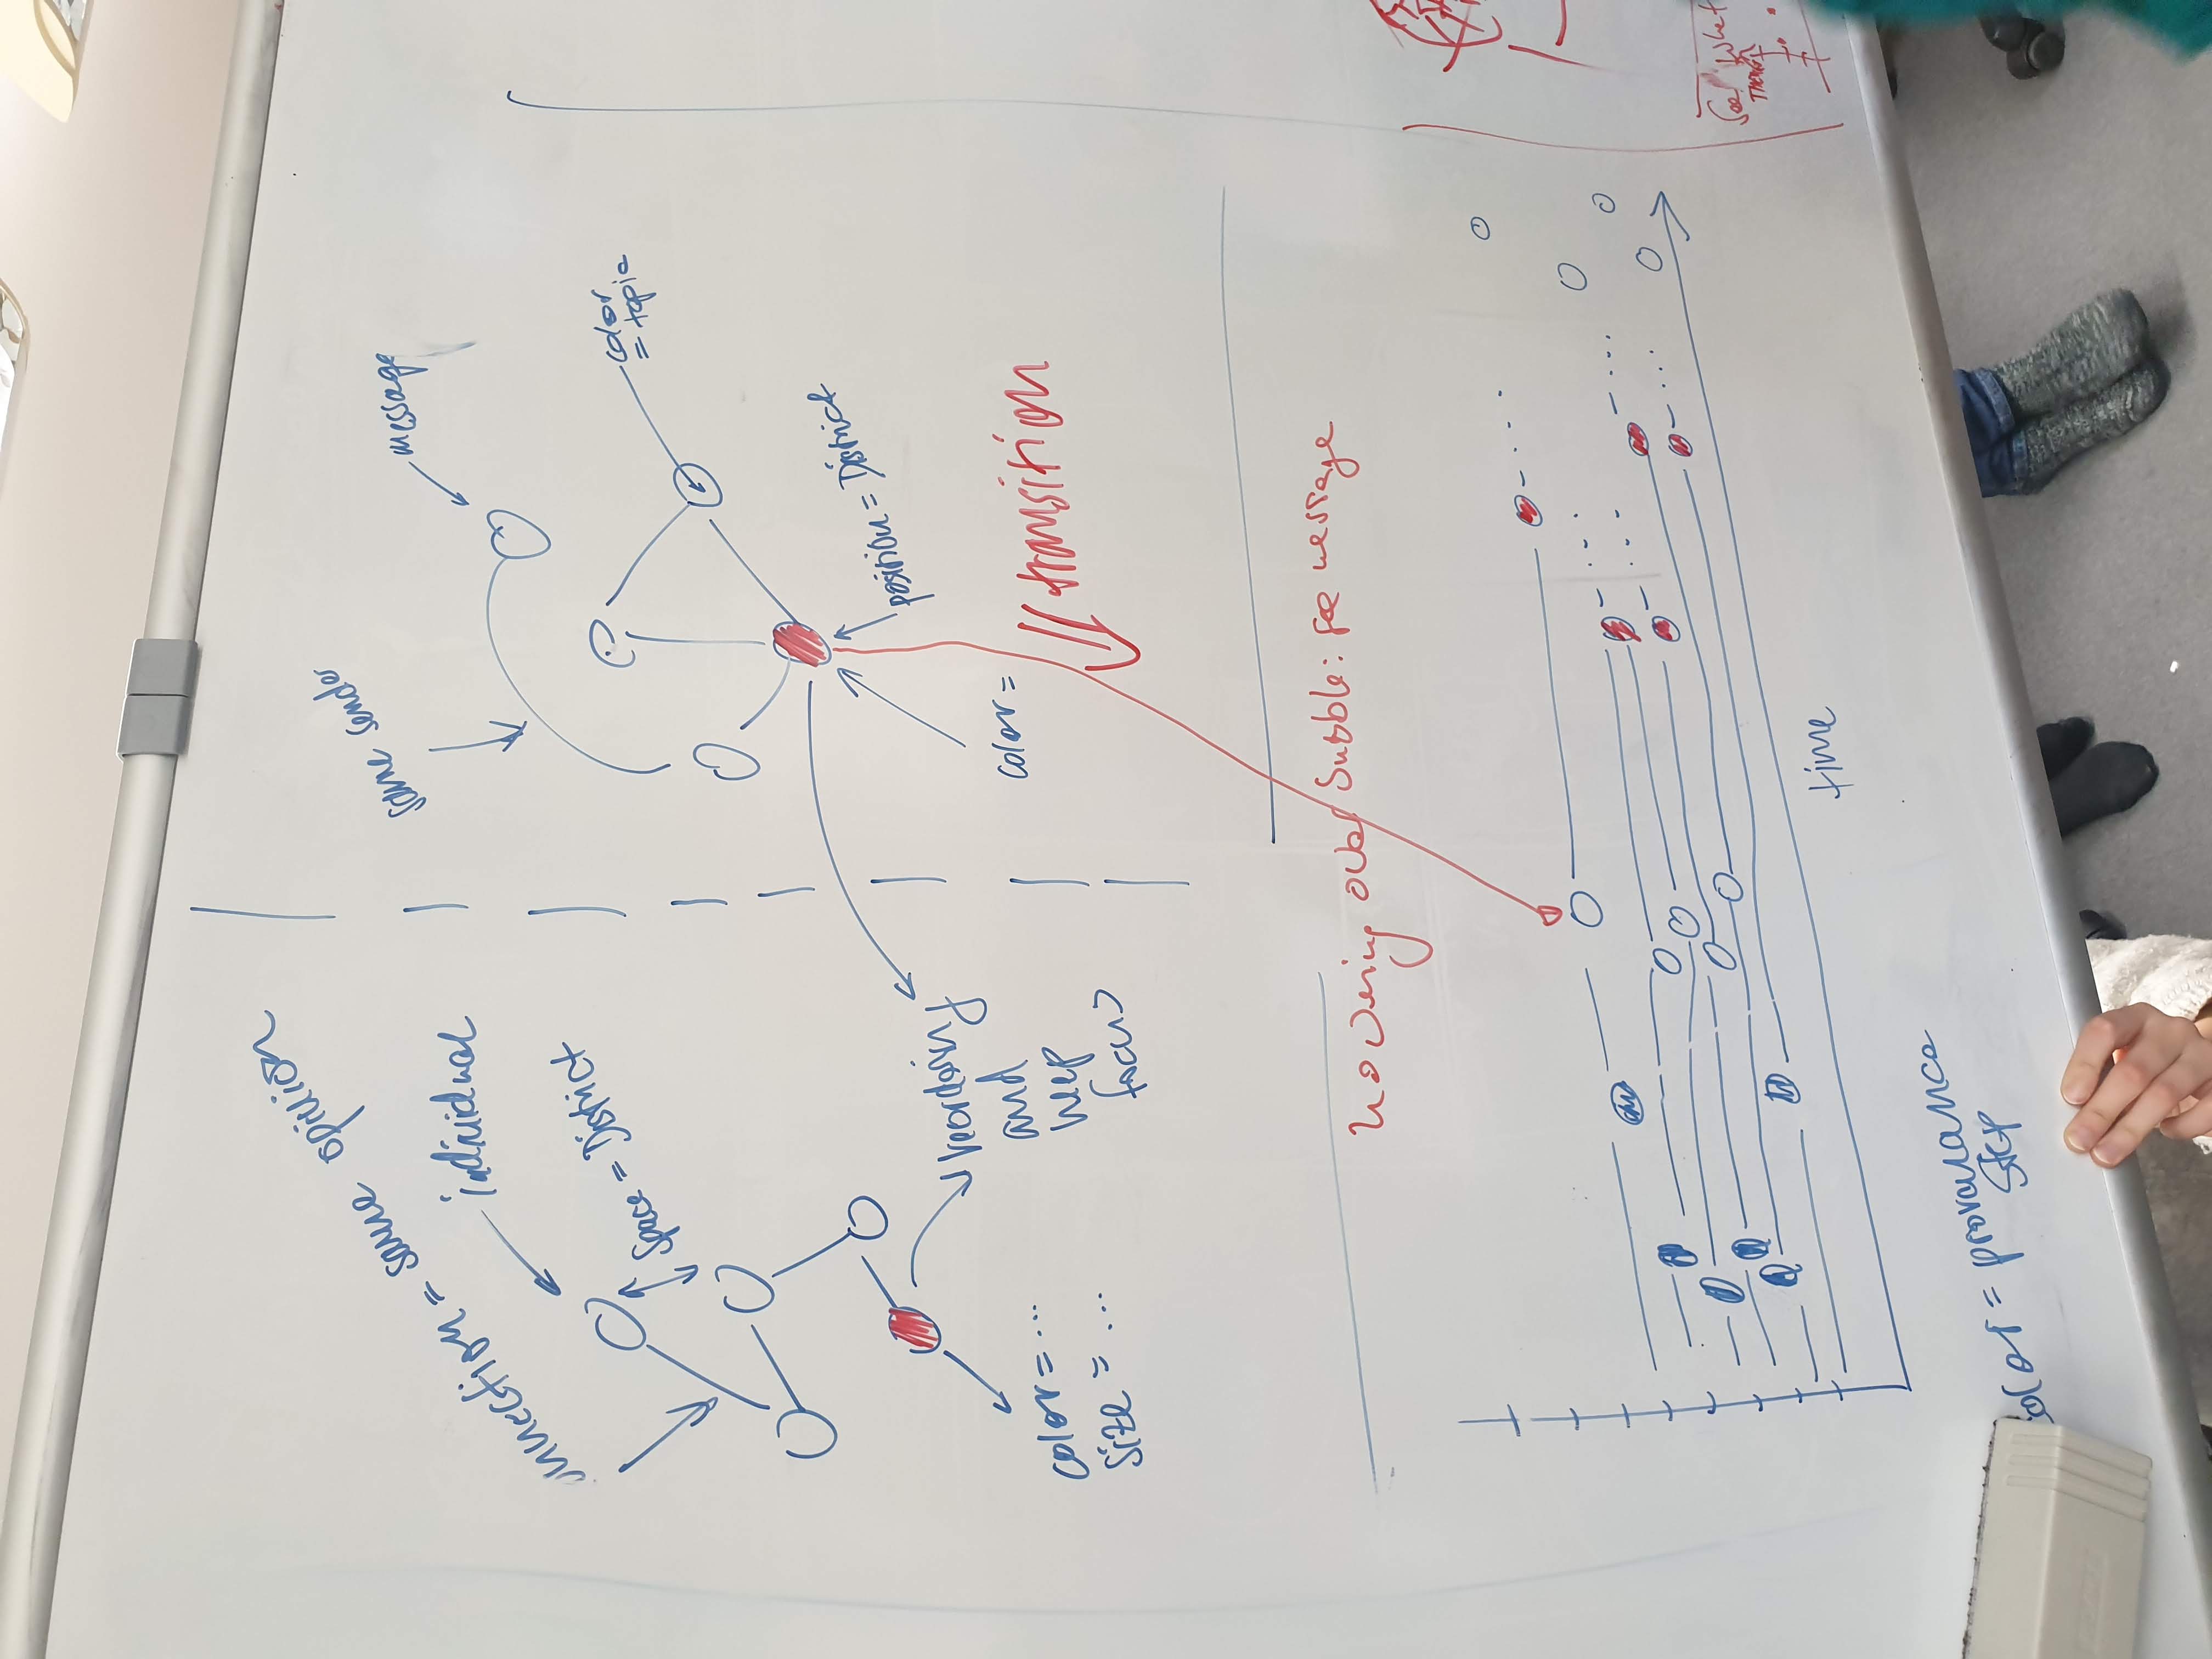 same opinion
individual
Space = District
color = ...
size = ...
and
keep
focus
same sender
message
color
= topic
position = District
color =
transition
hovering over bubble: see message
time
color = provenance
step
See what